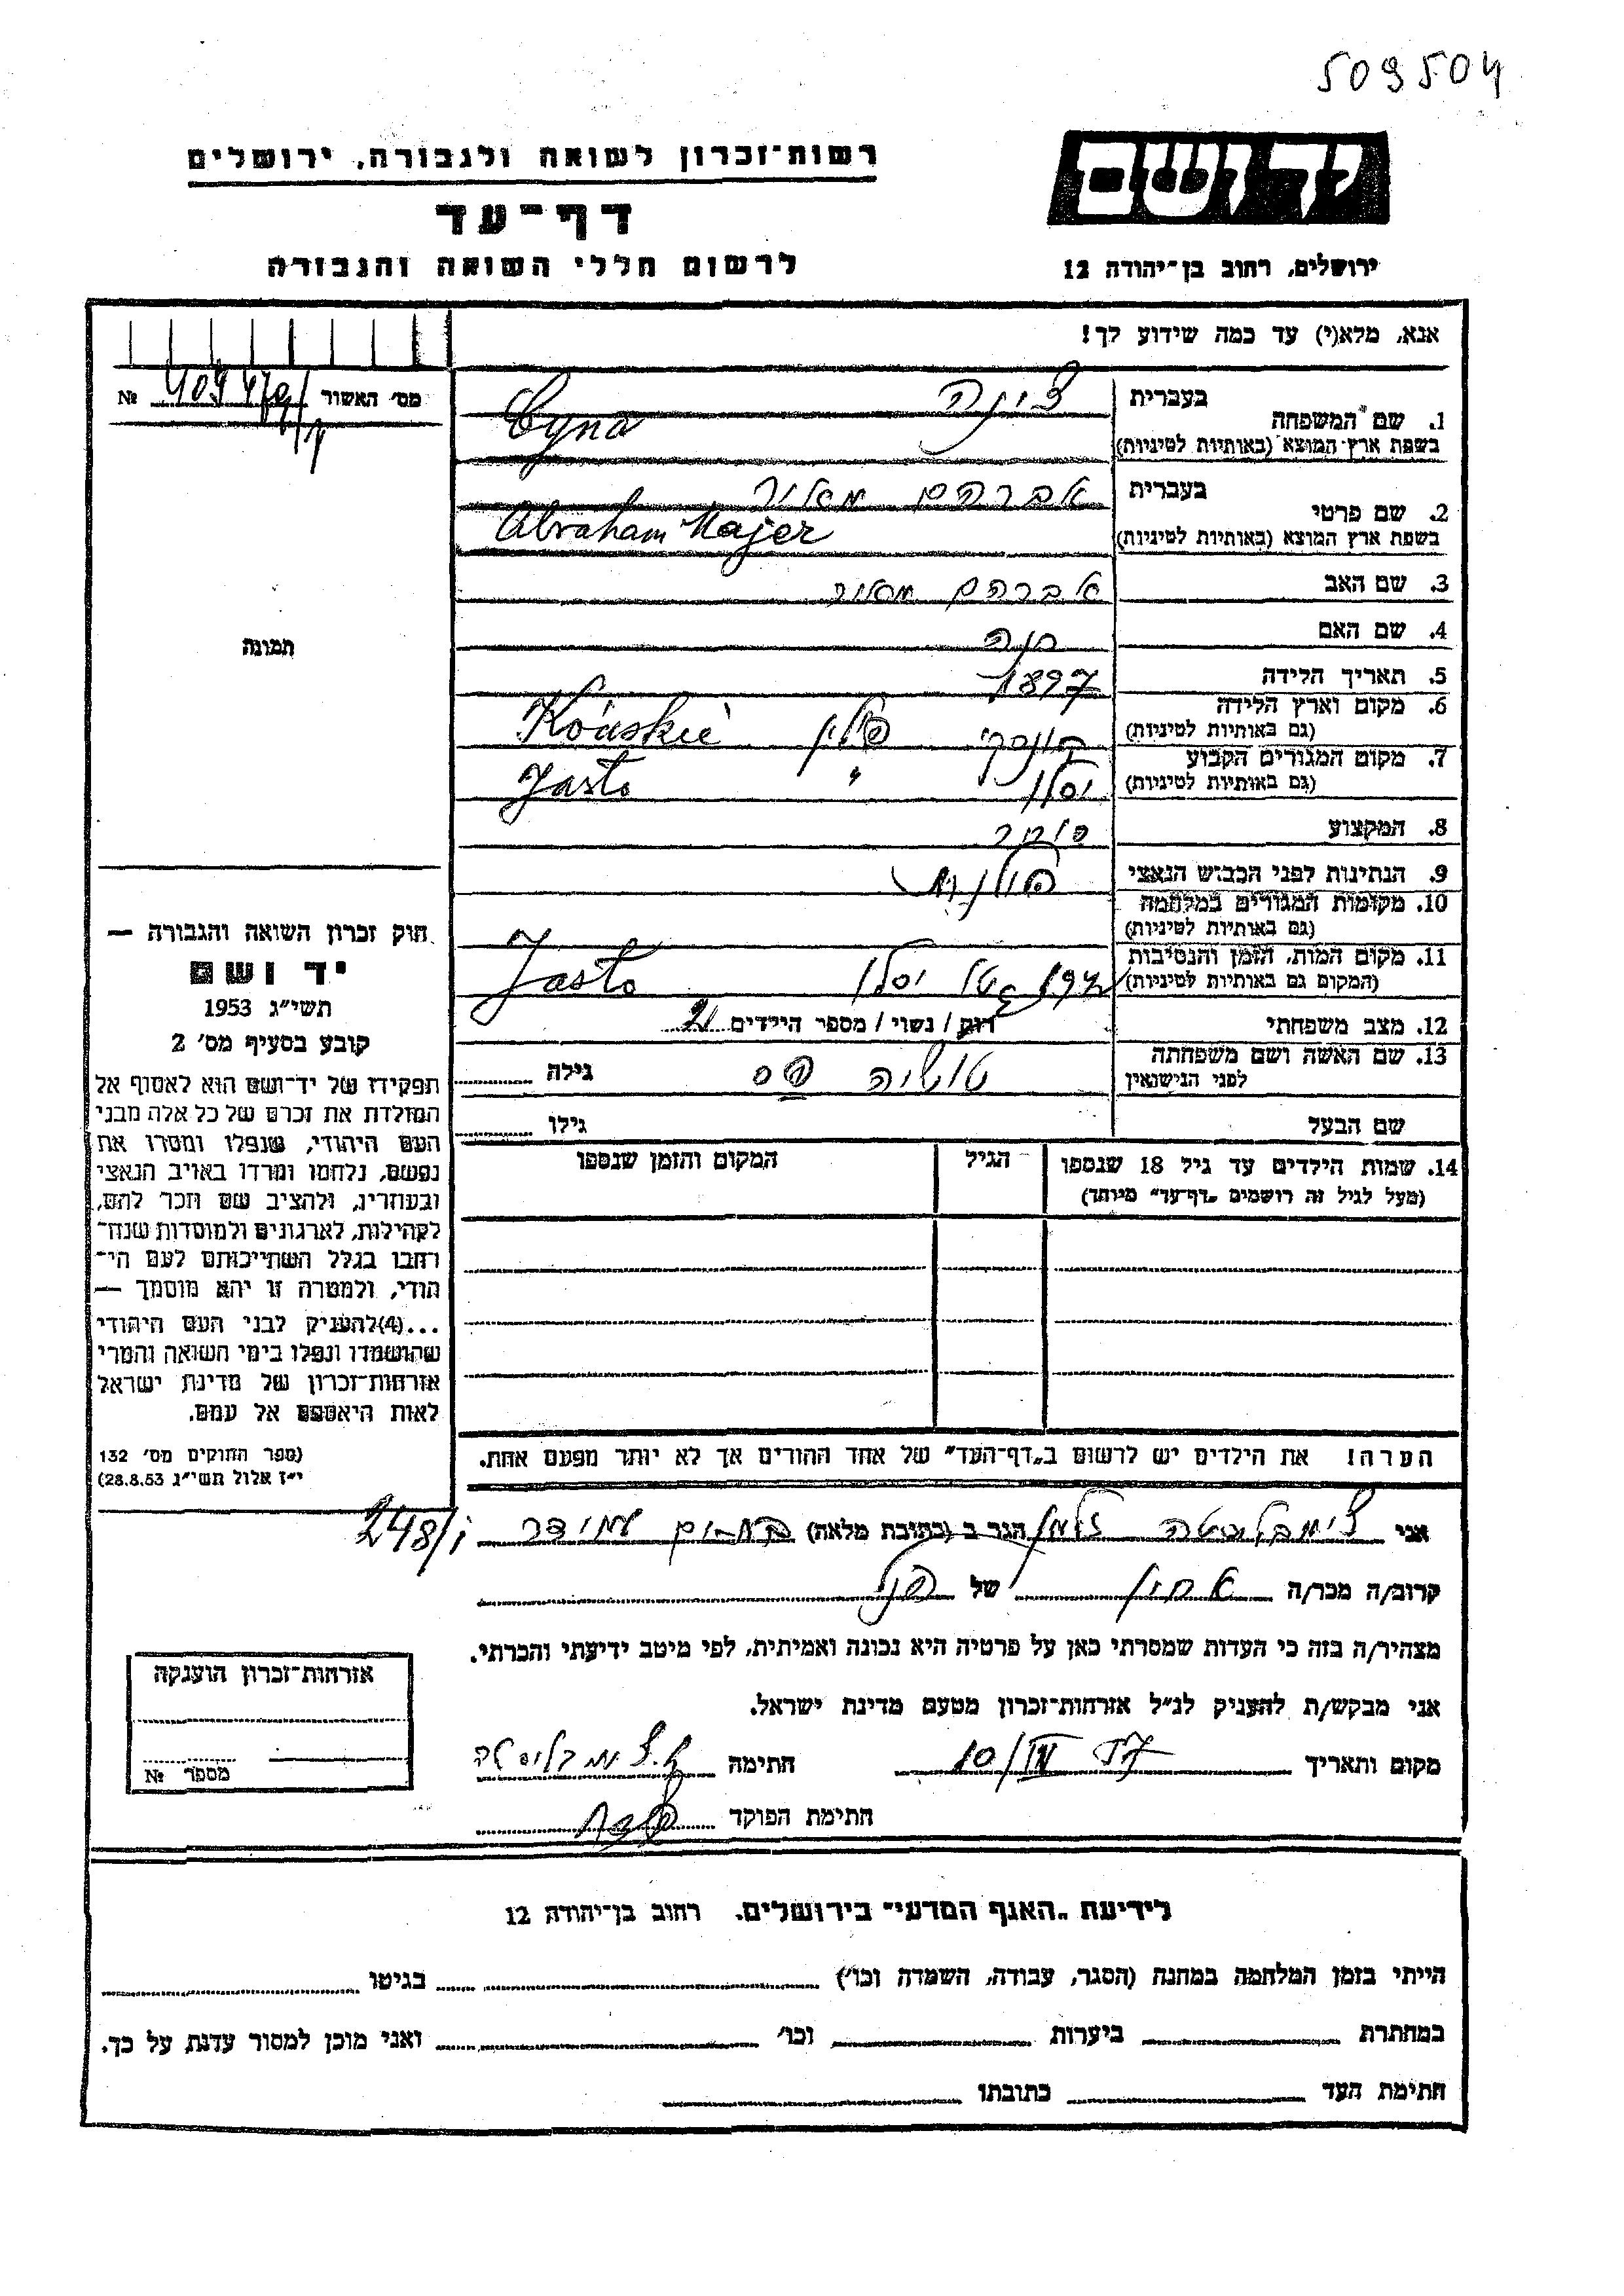 509504
רשות־זכרון לשואה ולגבורה, ירושלים
יד ושם
דף־עד
לרשום חללי השואה והגבורה
ירושלים, רחוב בן־יהודה 12
אנא, מלא(י) עד כמה שידוע לך!
מס׳ האשור № 409479/
1. שם המשפחה
בעברית צינה
בשפת ארץ המוצא (באותיות לטיניות) Cyna
2. שם פרטי
בעברית אברהם מאיר
בשפת ארץ המוצא (באותיות לטיניות) Abraham Majer
3. שם האב אברהם מאיר
4. שם האם חנה
5. תאריך הלידה 1897
6. מקום וארץ הלידה
(גם באותיות לטיניות) קונסקי פולין Końskie
7. מקום המגורים הקבוע
(גם באותיות לטיניות) יסלו " Jasło
8. המקצוע סוחר
9. הנתינות לפני הכבוש הנאצי פולנית
10. מקומות המגורים במלחמה
(גם באותיות לטיניות)
11. מקום המות, הזמן והנסיבות
(המקום גם באותיות לטיניות) גטו יסלו Jasło
12. מצב משפחתי רוק / נשוי / מספר הילדים 2
13. שם האשה ושם משפחתה
לפני הנישואין
גילה
שם הבעל גילו
14. שמות הילדים עד גיל 18 שנספו
(מעל לגיל זה רושמים „דף־עד” מיוחד)
הגיל
המקום והזמן שנספו
הערה! את הילדים יש לרשום ב„דף־העד” של אחד ההורים אך לא יותר מפעם אחת.
תמונה
חוק זכרון השואה והגבורה —
יד ושם
תשי״ג 1953
קובע בסעיף מס׳ 2
תפקידו של יד־ושם הוא לאסוף אל
המולדת את זכרם של כל אלה מבני
העם היהודי, שנפלו ומסרו את
נפשם, נלחמו ומרדו באויב הנאצי
ובעוזריו, ולהציב שם וזכר להם,
לקהילות, לארגונים ולמוסדות שנח־
רחבו בגלל השתייכותם לעם הי־
הודי, ולמטרה זו יהא מוסמך —
...(4)להעניק לבני העם היהודי
שהושמדו ונפלו בימי השואה והמרי
אזרחות־זכרון של מדינת ישראל
לאות היאספם אל עמם.
(ספר החוקים מס׳ 132
י״ז אלול תשי״ג 28.8.53)
248/i
אני צימבליסטה הגר ב (כתובת מלאה)
קרוב/ה מכר/ה של
מצהיר/ה בזה כי העדות שמסרתי כאן על פרטיה היא נכונה ואמיתית, לפי מיטב ידיעתי והכרתי.
אני מבקש/ת להעניק לנ״ל אזרחות־זכרון מטעם מדינת ישראל.
מקום ותאריך חתימה צימבליסטה
חתימת הפוקד
אזרחות־זכרון הוענקה
מספר №
לידיעת „האגף המדעי” בירושלים, רחוב בן־יהודה 12
הייתי בזמן המלחמה במחנה (הסגר, עבודה, השמדה וכו׳) בגיטו
במחתרת ביערות וכו׳ ואני מוכן למסור עדות על כך.
חתימת העד כתובתו